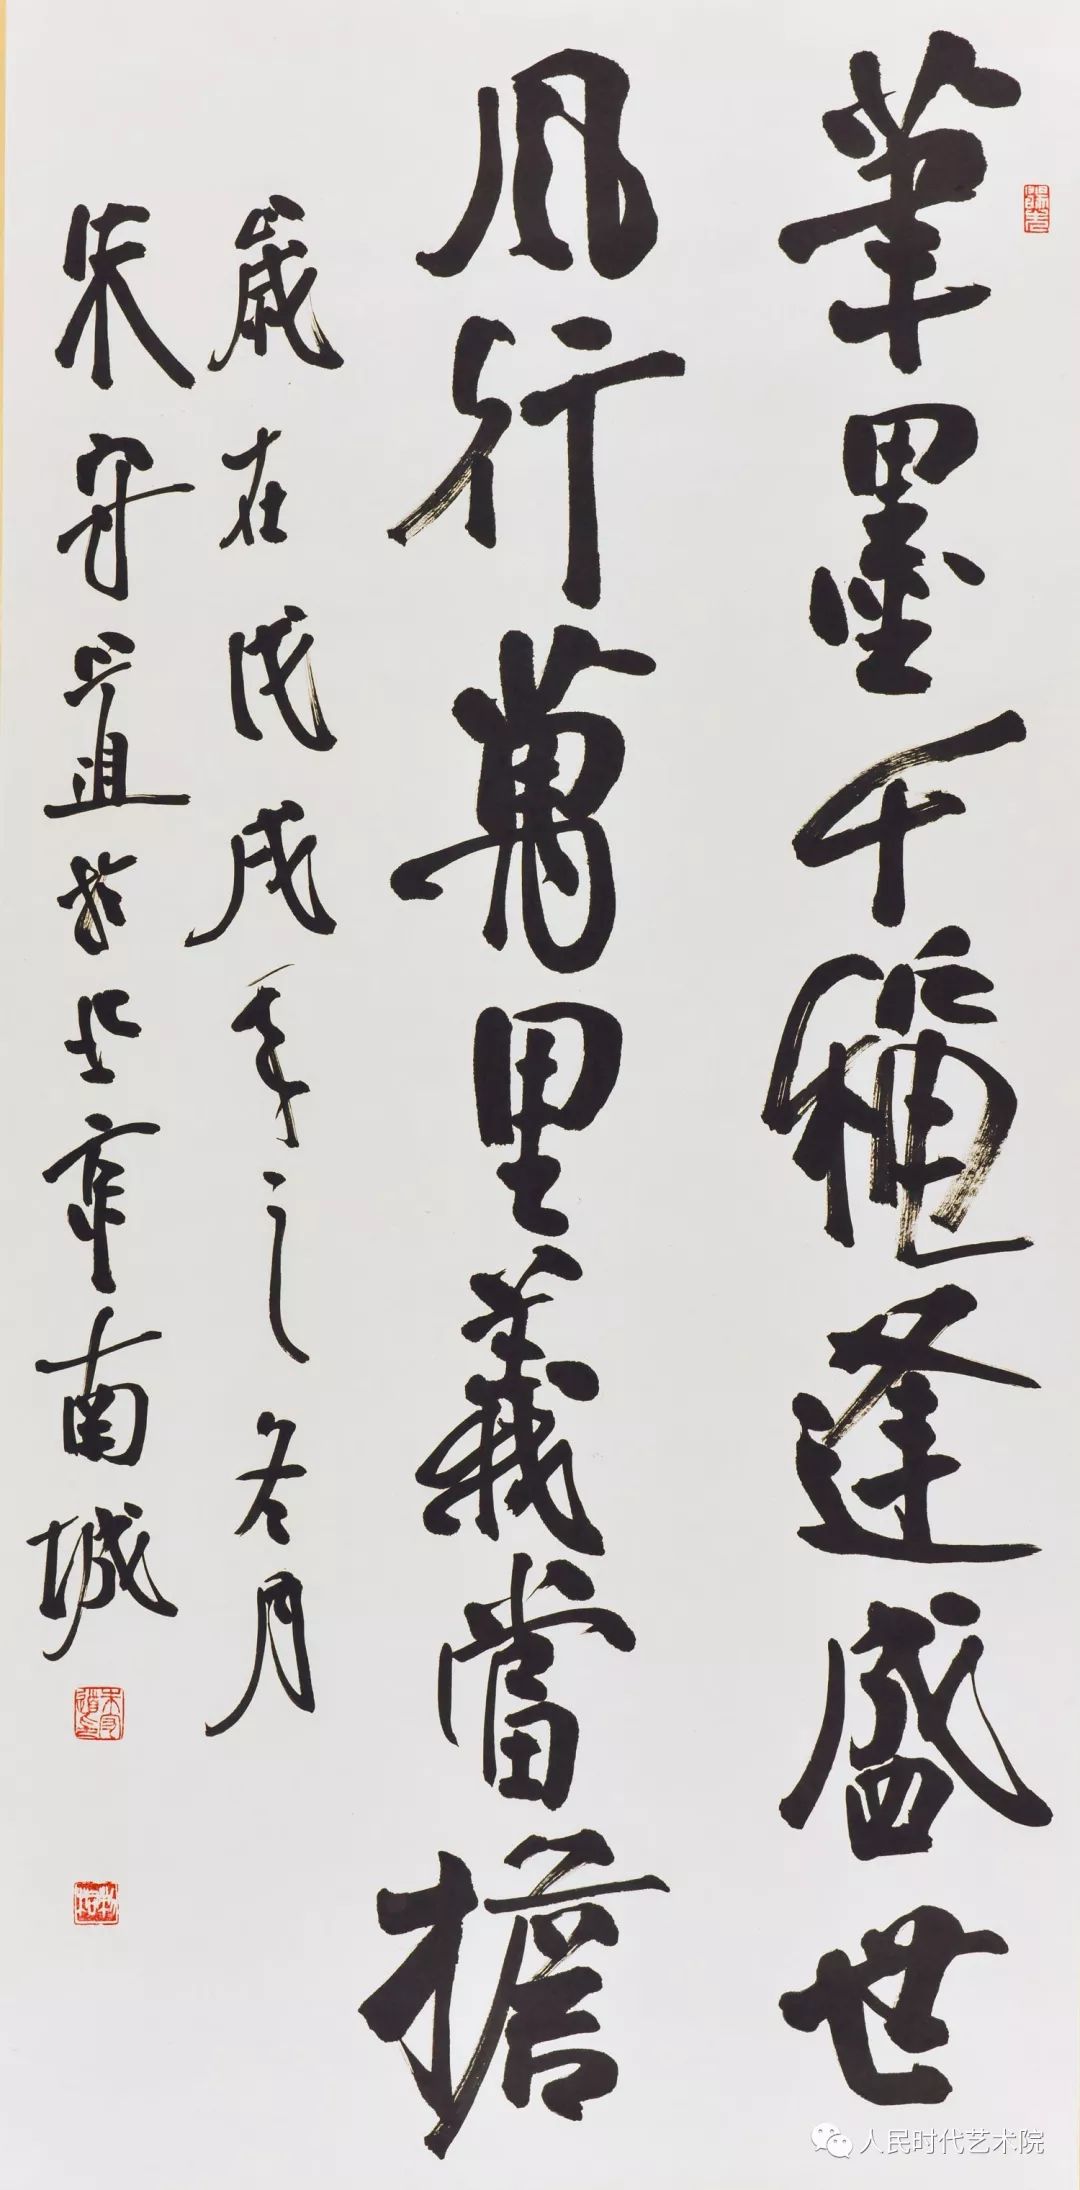 筆墨千龝逢盛世
風行萬里義當擔
歲在戊戌年之冬月
朱守道於北京南城
人民时代艺术院